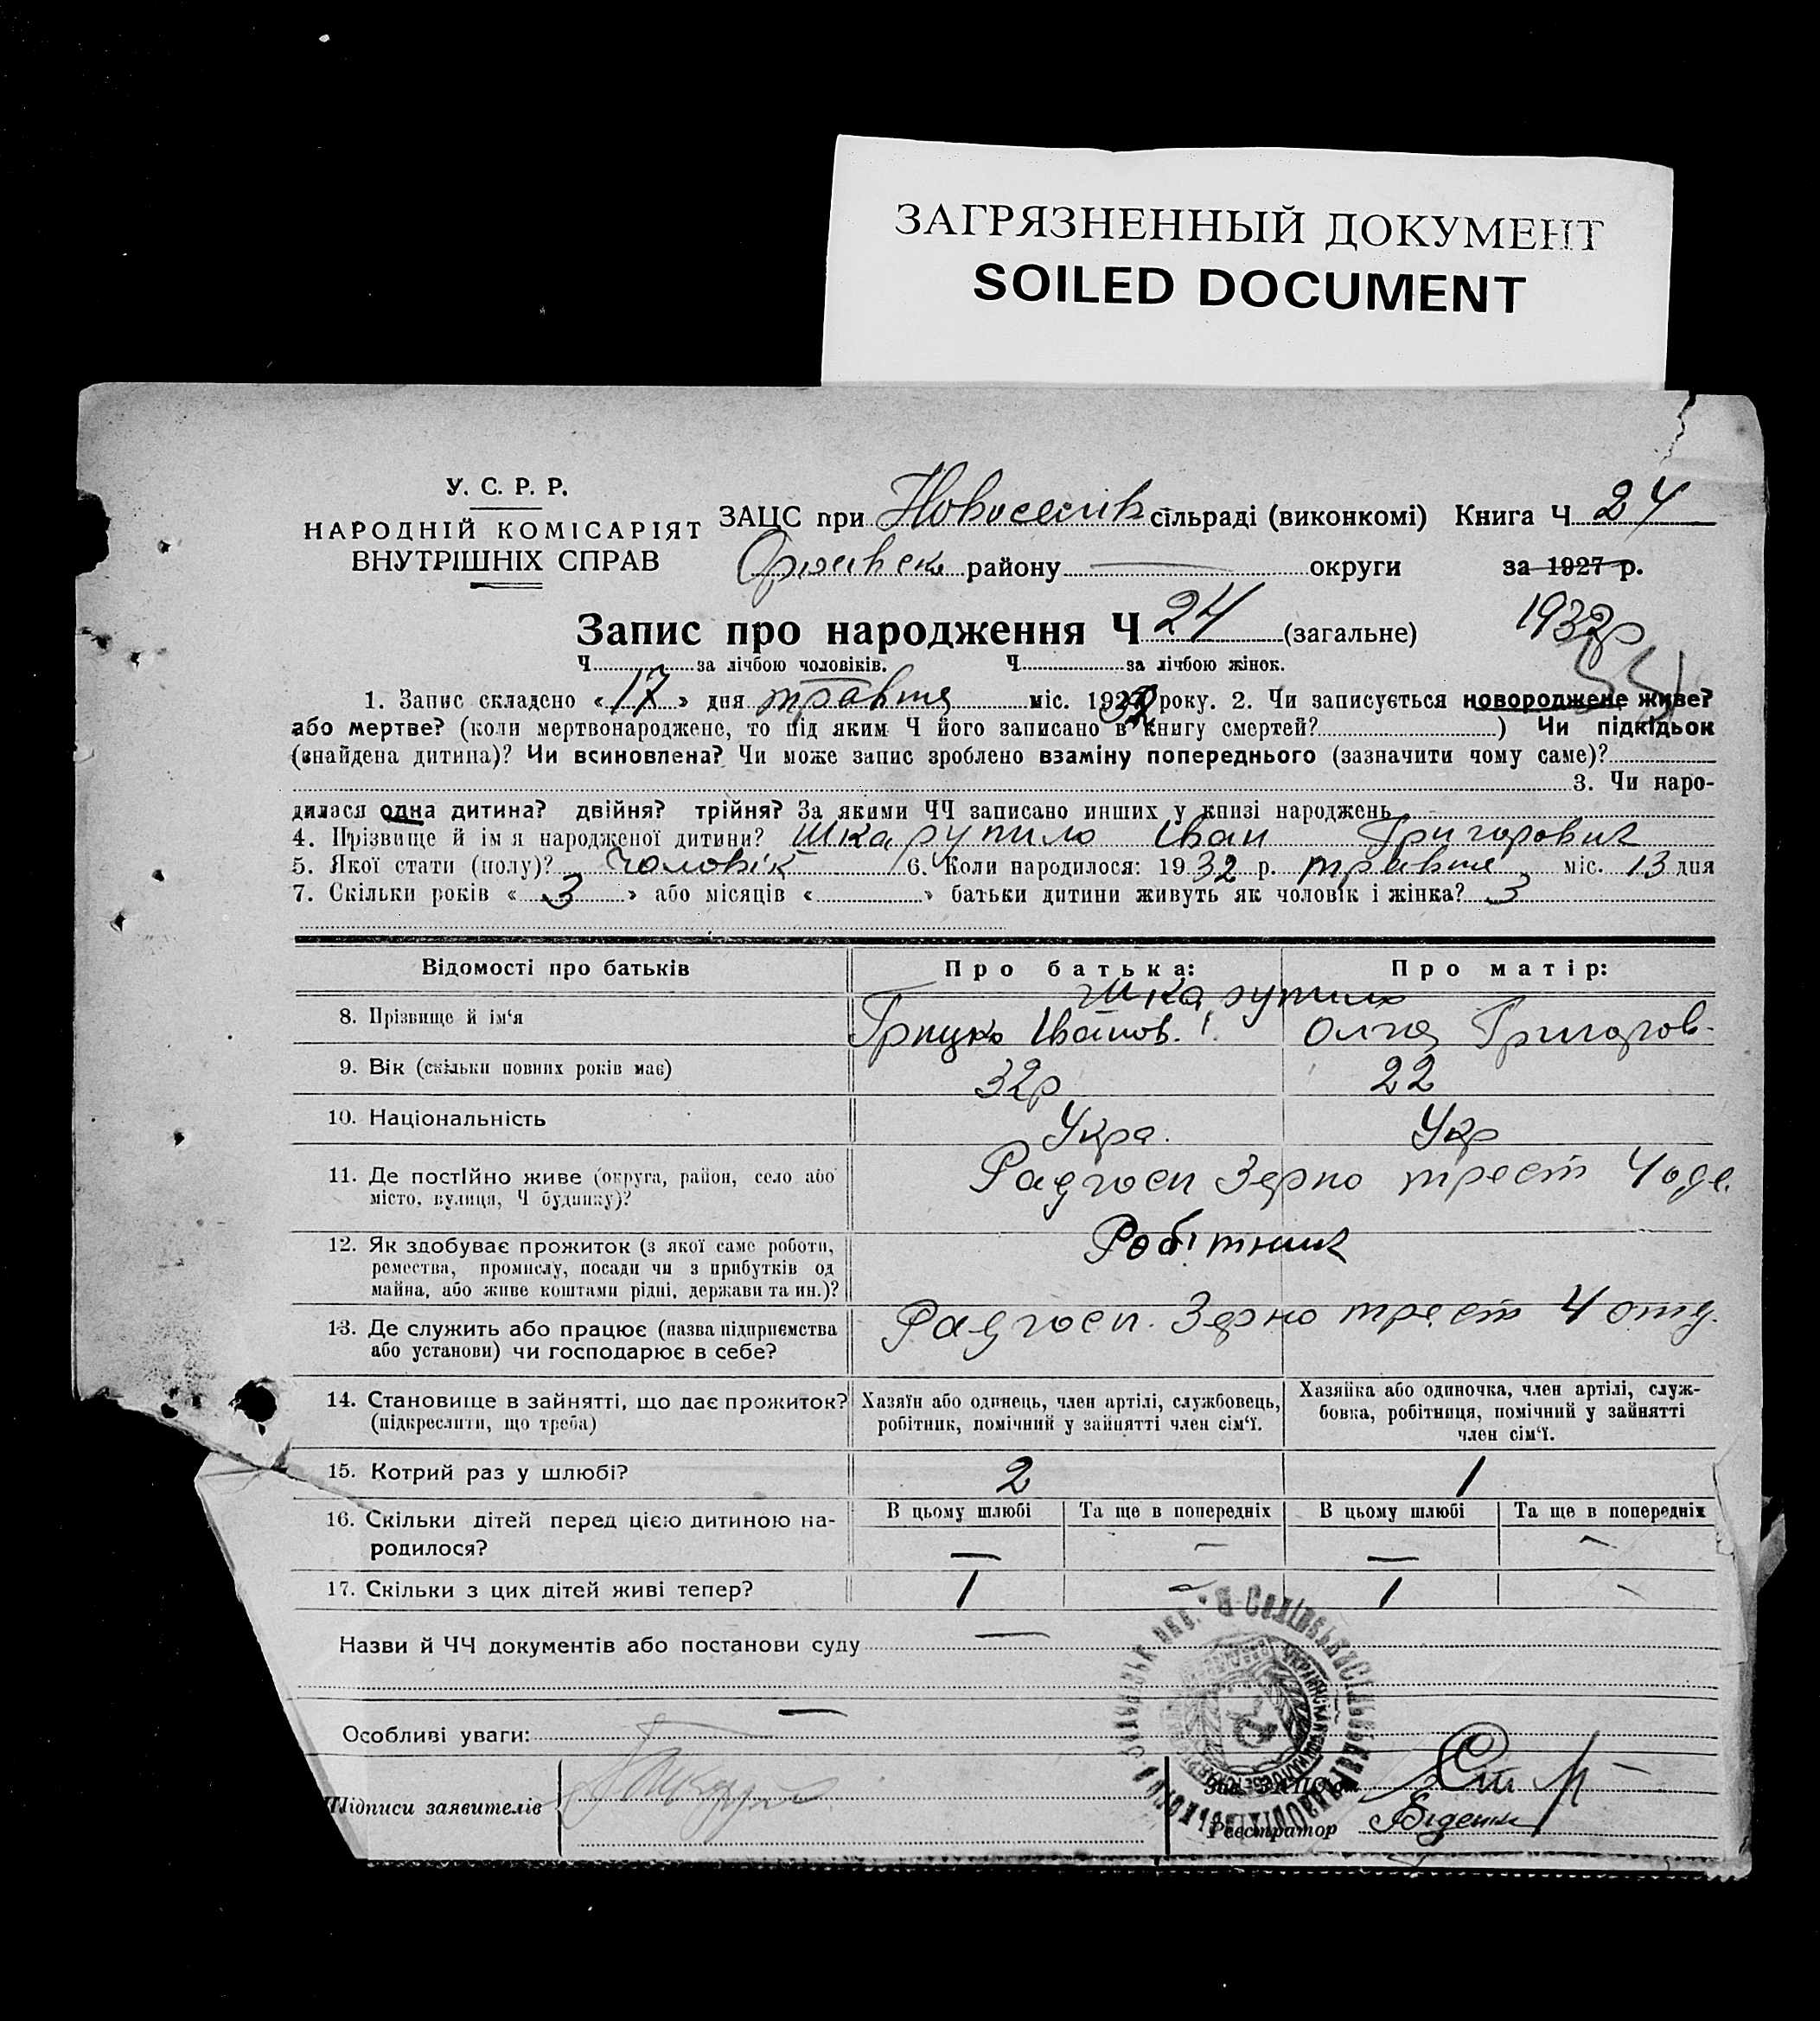 ЗАГРЯЗНЕННЫЙ ДОКУМЕНТ
SOILED DOCUMENT
У. С. Р. Р.
НАРОДНІЙ КОМІСАРІЯТ
ВНУТРІШНІХ СПРАВ
ЗАЦС при Новоселів сільраді (виконкомі) Книга Ч 24
району округи за 1927 р.
1932р
Запис про народження Ч 24 (загальне)
Ч за лічбою чоловіків. Ч за лічбою жінок.
1. Запис складено «17» дня травня міс. 1932 року. 2. Чи записується новороджене живе?
або мертве? (коли мертвонароджене, то під яким Ч його записано в книгу смертей? ) Чи підкідьок
(знайдена дитина)? Чи всиновлена? Чи може запис зроблено взаміну попереднього (зазначити чому саме)?
3. Чи наро-
дилася одна дитина? двійня? трійня? За якими ЧЧ записано инших у книзі народжень
4. Прізвище й ім я народженої дитини? Шкарупило Іван Григорович
5. Якої стати (полу)? Чоловік 6. Коли народилося: 1932 р. травня міс. 13 дня
7. Скільки років «3» або місяців « » батьки дитини живуть як чоловік і жінка? 3
Відомості про батьків Про батька: Про матір:
Шкарупило
8. Прізвище й ім‘я Грицко Іванов. Олга Григоров.
9. Вік (скільки повних років має) 32р 22
10. Національність Укра. Укр
11. Де постійно живе (округа, район, село або
місто, вулиця, Ч будинку)? Радгосп Зерно трест 4 оде.
12. Як здобуває прожиток (з якої саме роботи,
ремества, промислу, посади чи з прибутків од
майна, або живе коштами рідні, держави та ин.)? Робітник
13. Де служить або працює (назва підприємства
або установи) чи господарює в себе? Радгосп. Зерно трест 4 отд.
14. Становище в зайнятті, що дає прожиток?
(підкреслити, що треба)
Хазяїн або одинець, член артілі, службовець,
робітник, помічний у зайнятті член сім‘ї.
Хазяйка або одиночка, член артілі, служ-
бовка, робітниця, помічний у зайнятті
член сім‘ї.
15. Котрий раз у шлюбі? 2 1
16. Скільки дітей перед цією дитиною на-
родилося?
В цьому шлюбі Та ще в попередніх В цьому шлюбі Та ще в попередніх
— — — —
17. Скільки з цих дітей живі тепер? 1 - 1 -
Назви й ЧЧ документів або постанови суду —
Особливі уваги: —
Підписи заявителів
Реєстратор